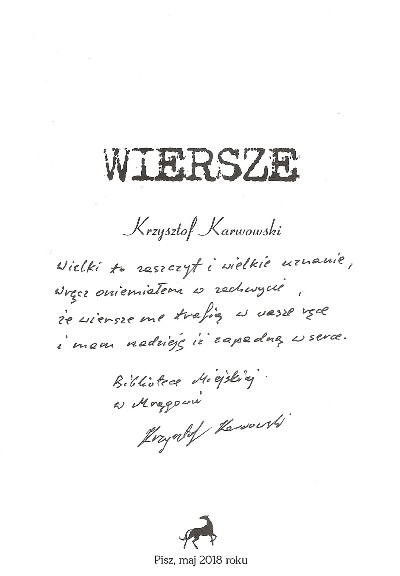 WIERSZE
Krzysztof Karwowski
Wielki to zaszczyt i wielkie uznanie,
wręcz oniemiałem w zachwycie,
że wiersze me trafią w wasze ręce
i mam nadzieję iż zapadną w serce.
Bibliotece Miejskiej
w Mrągowie
Krzysztof Karwowski
Pisz, maj 2018 roku